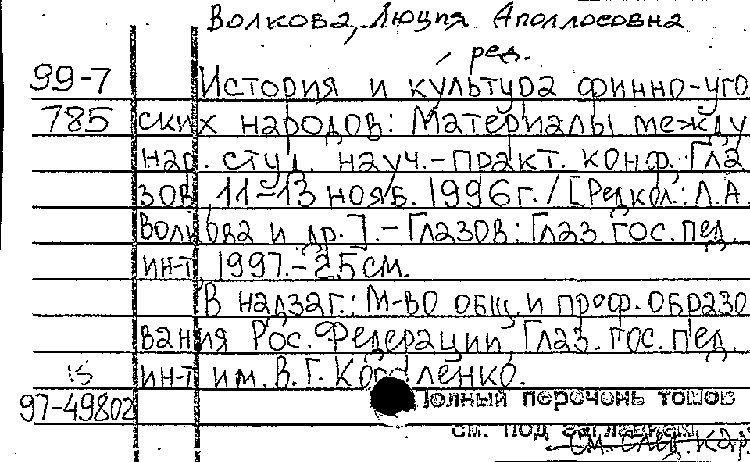 Волкова, Люция Аполлосовна
ред.
99-7 История и культура финно-уго
785 ских народов: Материалы между
нар. студ. науч.-практ. конф., Гла
зов, 11-13 нояб. 1996 г. / [Редкол.: Л.А.
Волкова и др.]. - Глазов: Глаз. гос. пед.
ин-т, 1997. - 25 см.
В надзаг.: М-во общ. и проф. образо
вания Рос. Федерации, Глаз. гос. пед.
15 ин-т им. В.Г. Короленко.
97-49802 Полный перечень томов
см. под заглавием
см. след. кар.